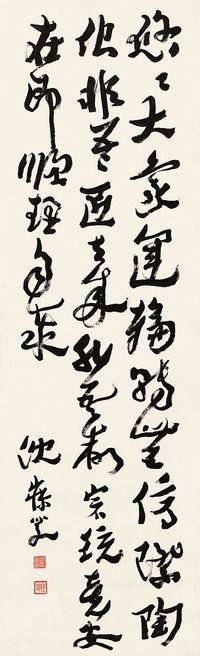 悠〻大象運輪轉無停際陶
化非吾匠去来非吾制宗統竟安
在即順理自泰
沈